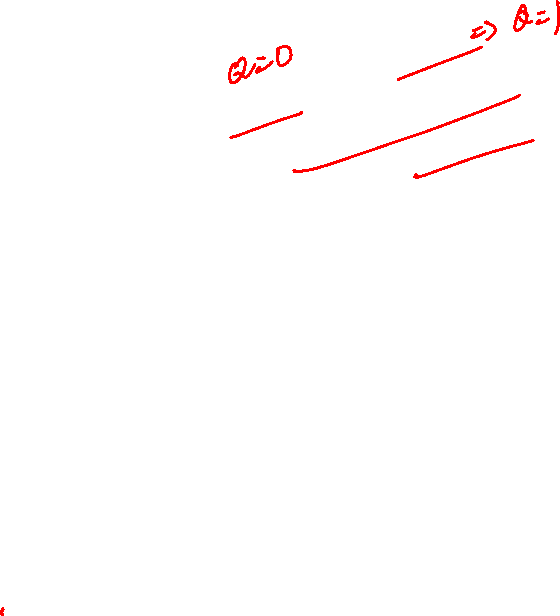 Q=0
=> Q=1